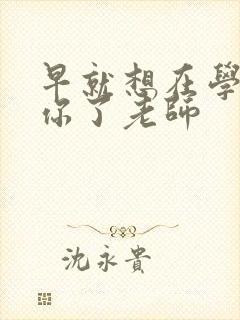 早就想在學
你了老師
沈永貴